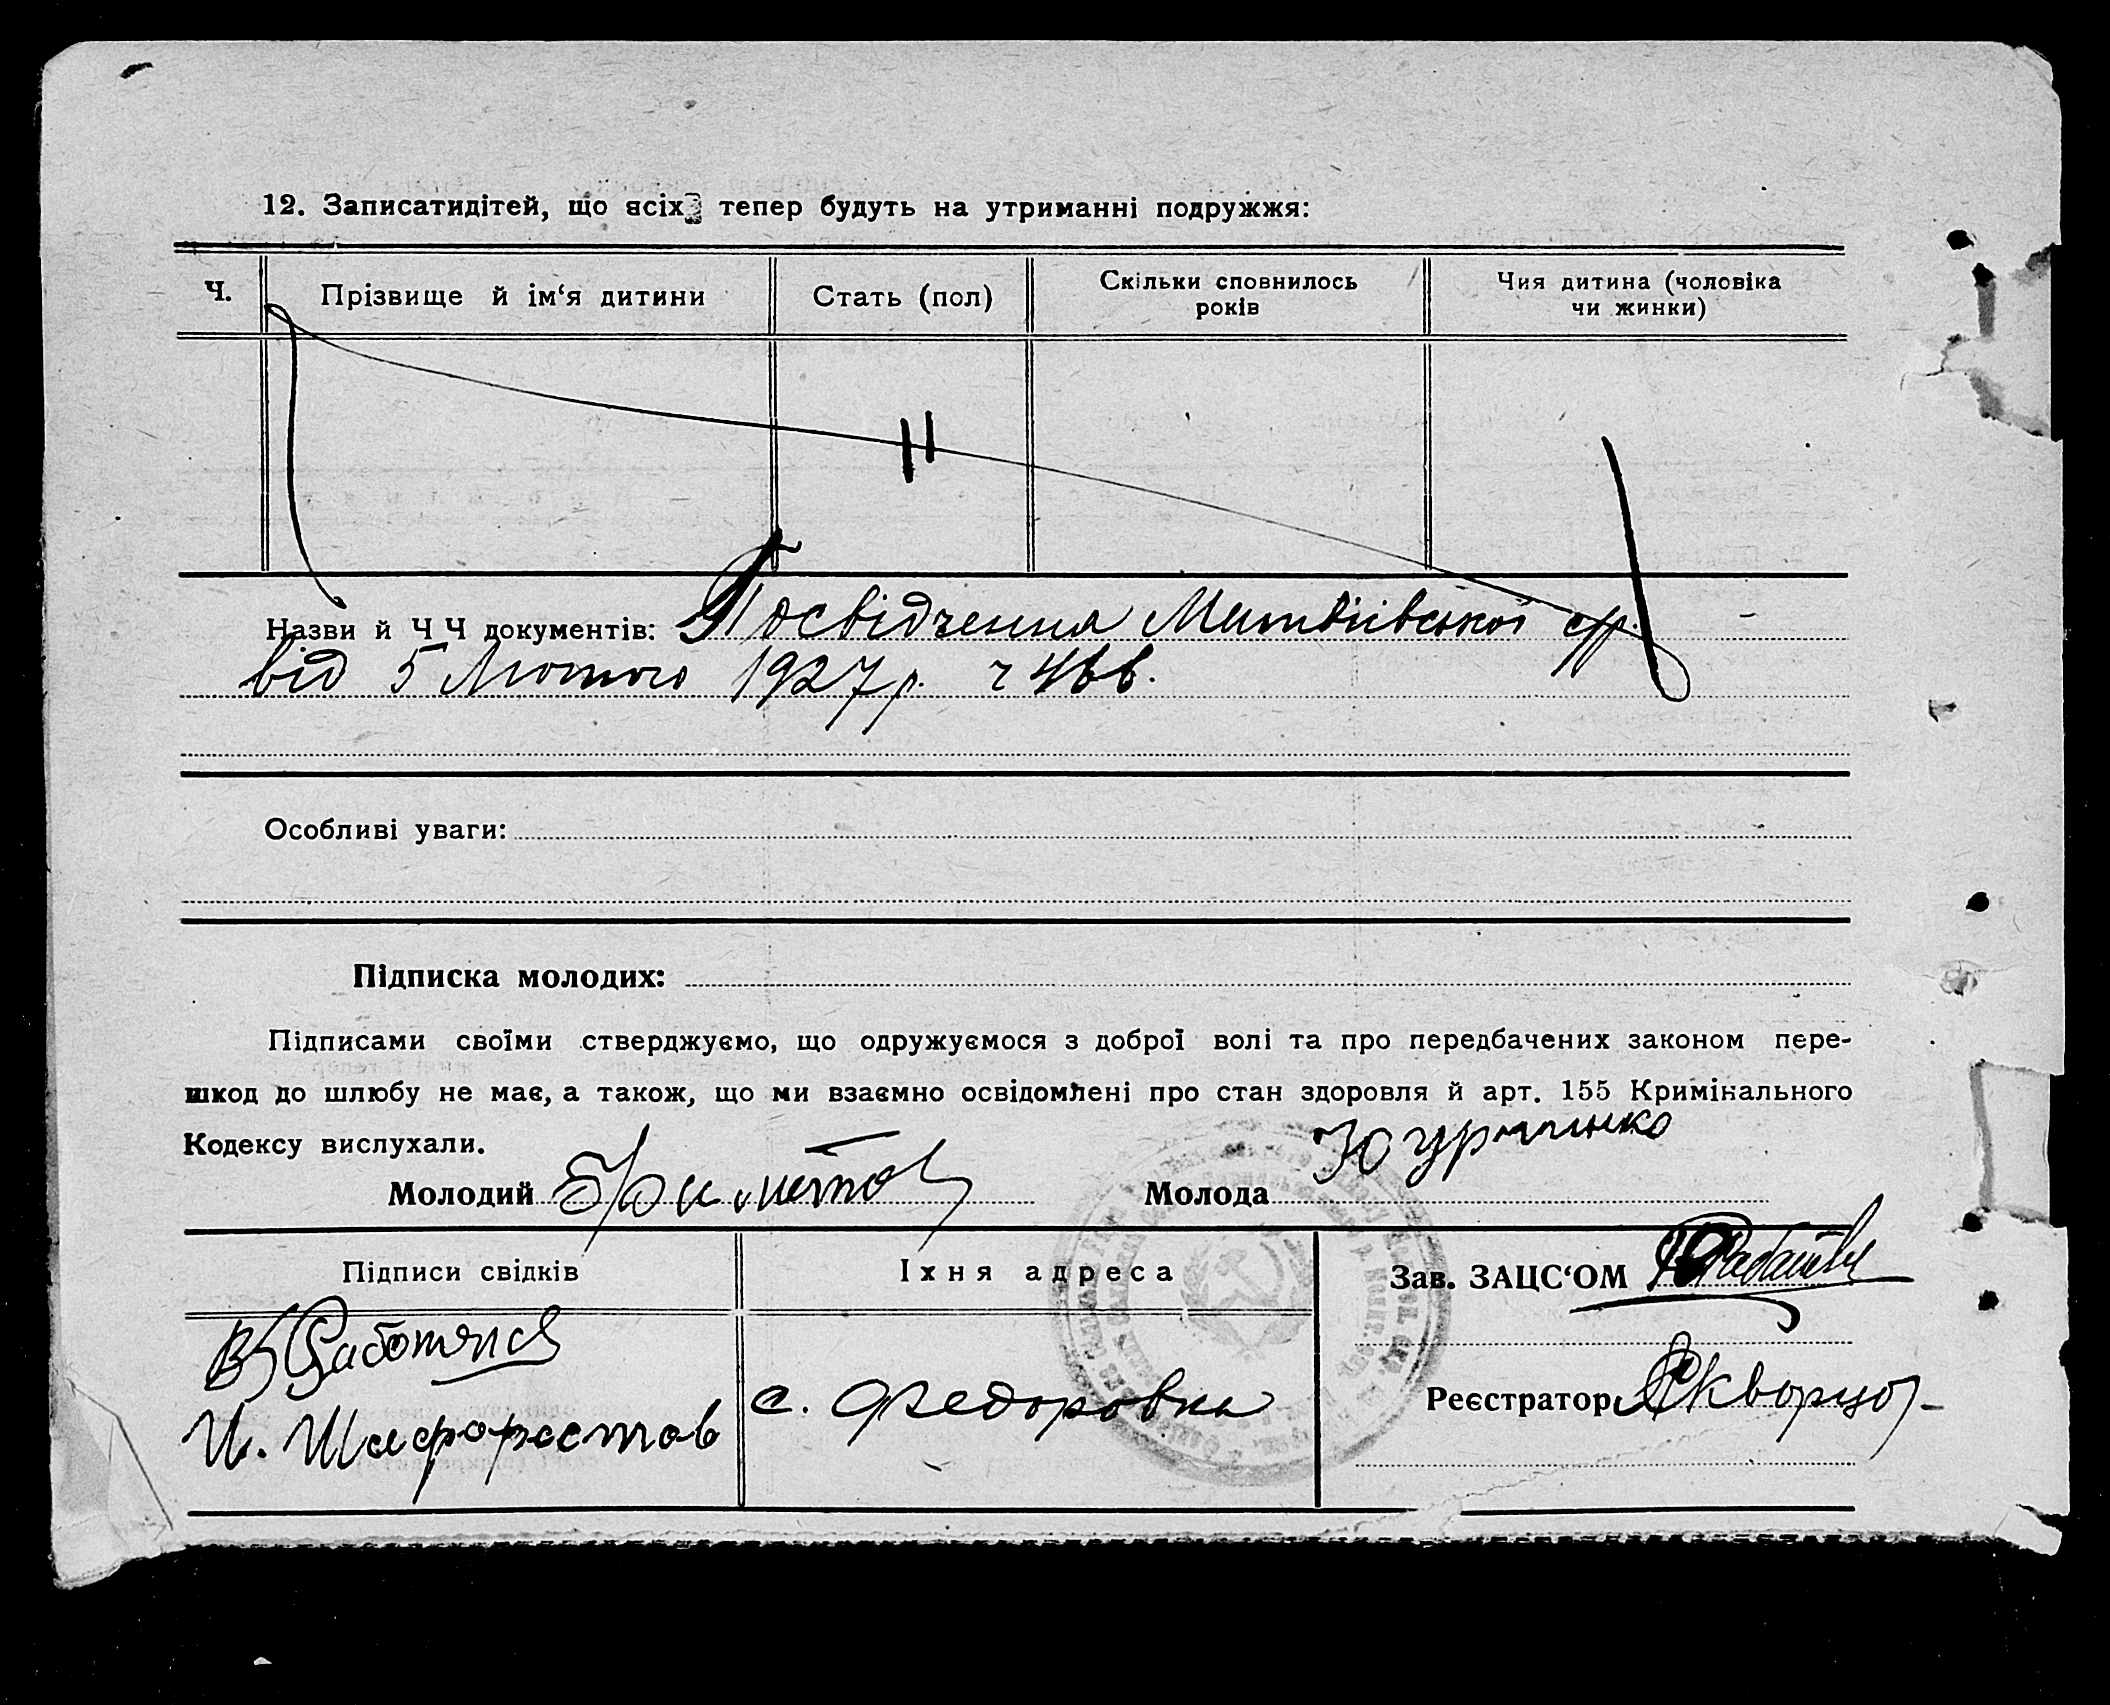 12. Записатидітей, що всіх тепер будуть на утриманні подружжя:
Ч.
Прізвище й ім‘я дитини
Стать (пол)
Скільки сповнилось
років
Чия дитина (чоловіка
чи жинки)
Назви й Ч Ч документів: Посвідчення Матвіівської с/р.
від 5 Лютого 1927 р. ч
Особливі уваги:
Підписка молодих:
Підписами своїми стверджуємо, що одружуємося з доброї волі та про передбачених законом пере-
шкод до шлюбу не має, а також, що ми взаємно освідомлені про стан здоровля й арт. 155 Кримінального
Кодексу вислухали.
Молодий
Молода
Підписи свідків
Їхня адреса
Зав. ЗАЦС‘ОМ
И. Шафоростов
с. Федоровка
Реєстратор Скворцов